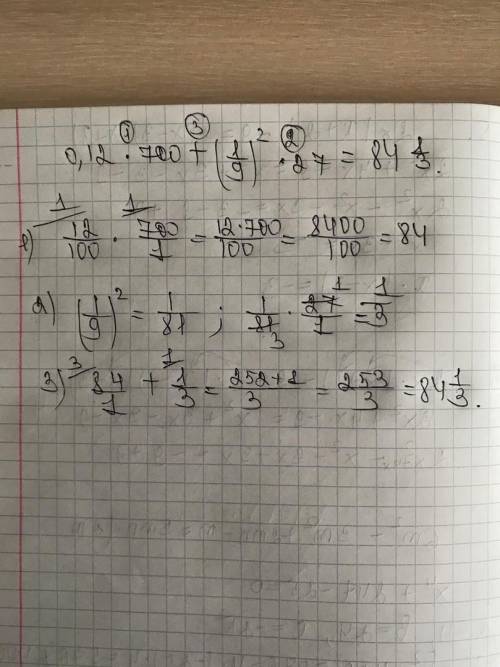 ① ③ ②
0,12 · 700 + (1/9)² · 27 = 84 1/3.
1) 12/100 · 700/1 = 12·700/100 = 8400/100 = 84
2) (1/9)² = 1/81 ; 1/81 · 27/1 = 1/3
3) 84/1 + 1/3 = 252+1/3 = 253/3 = 84 1/3.